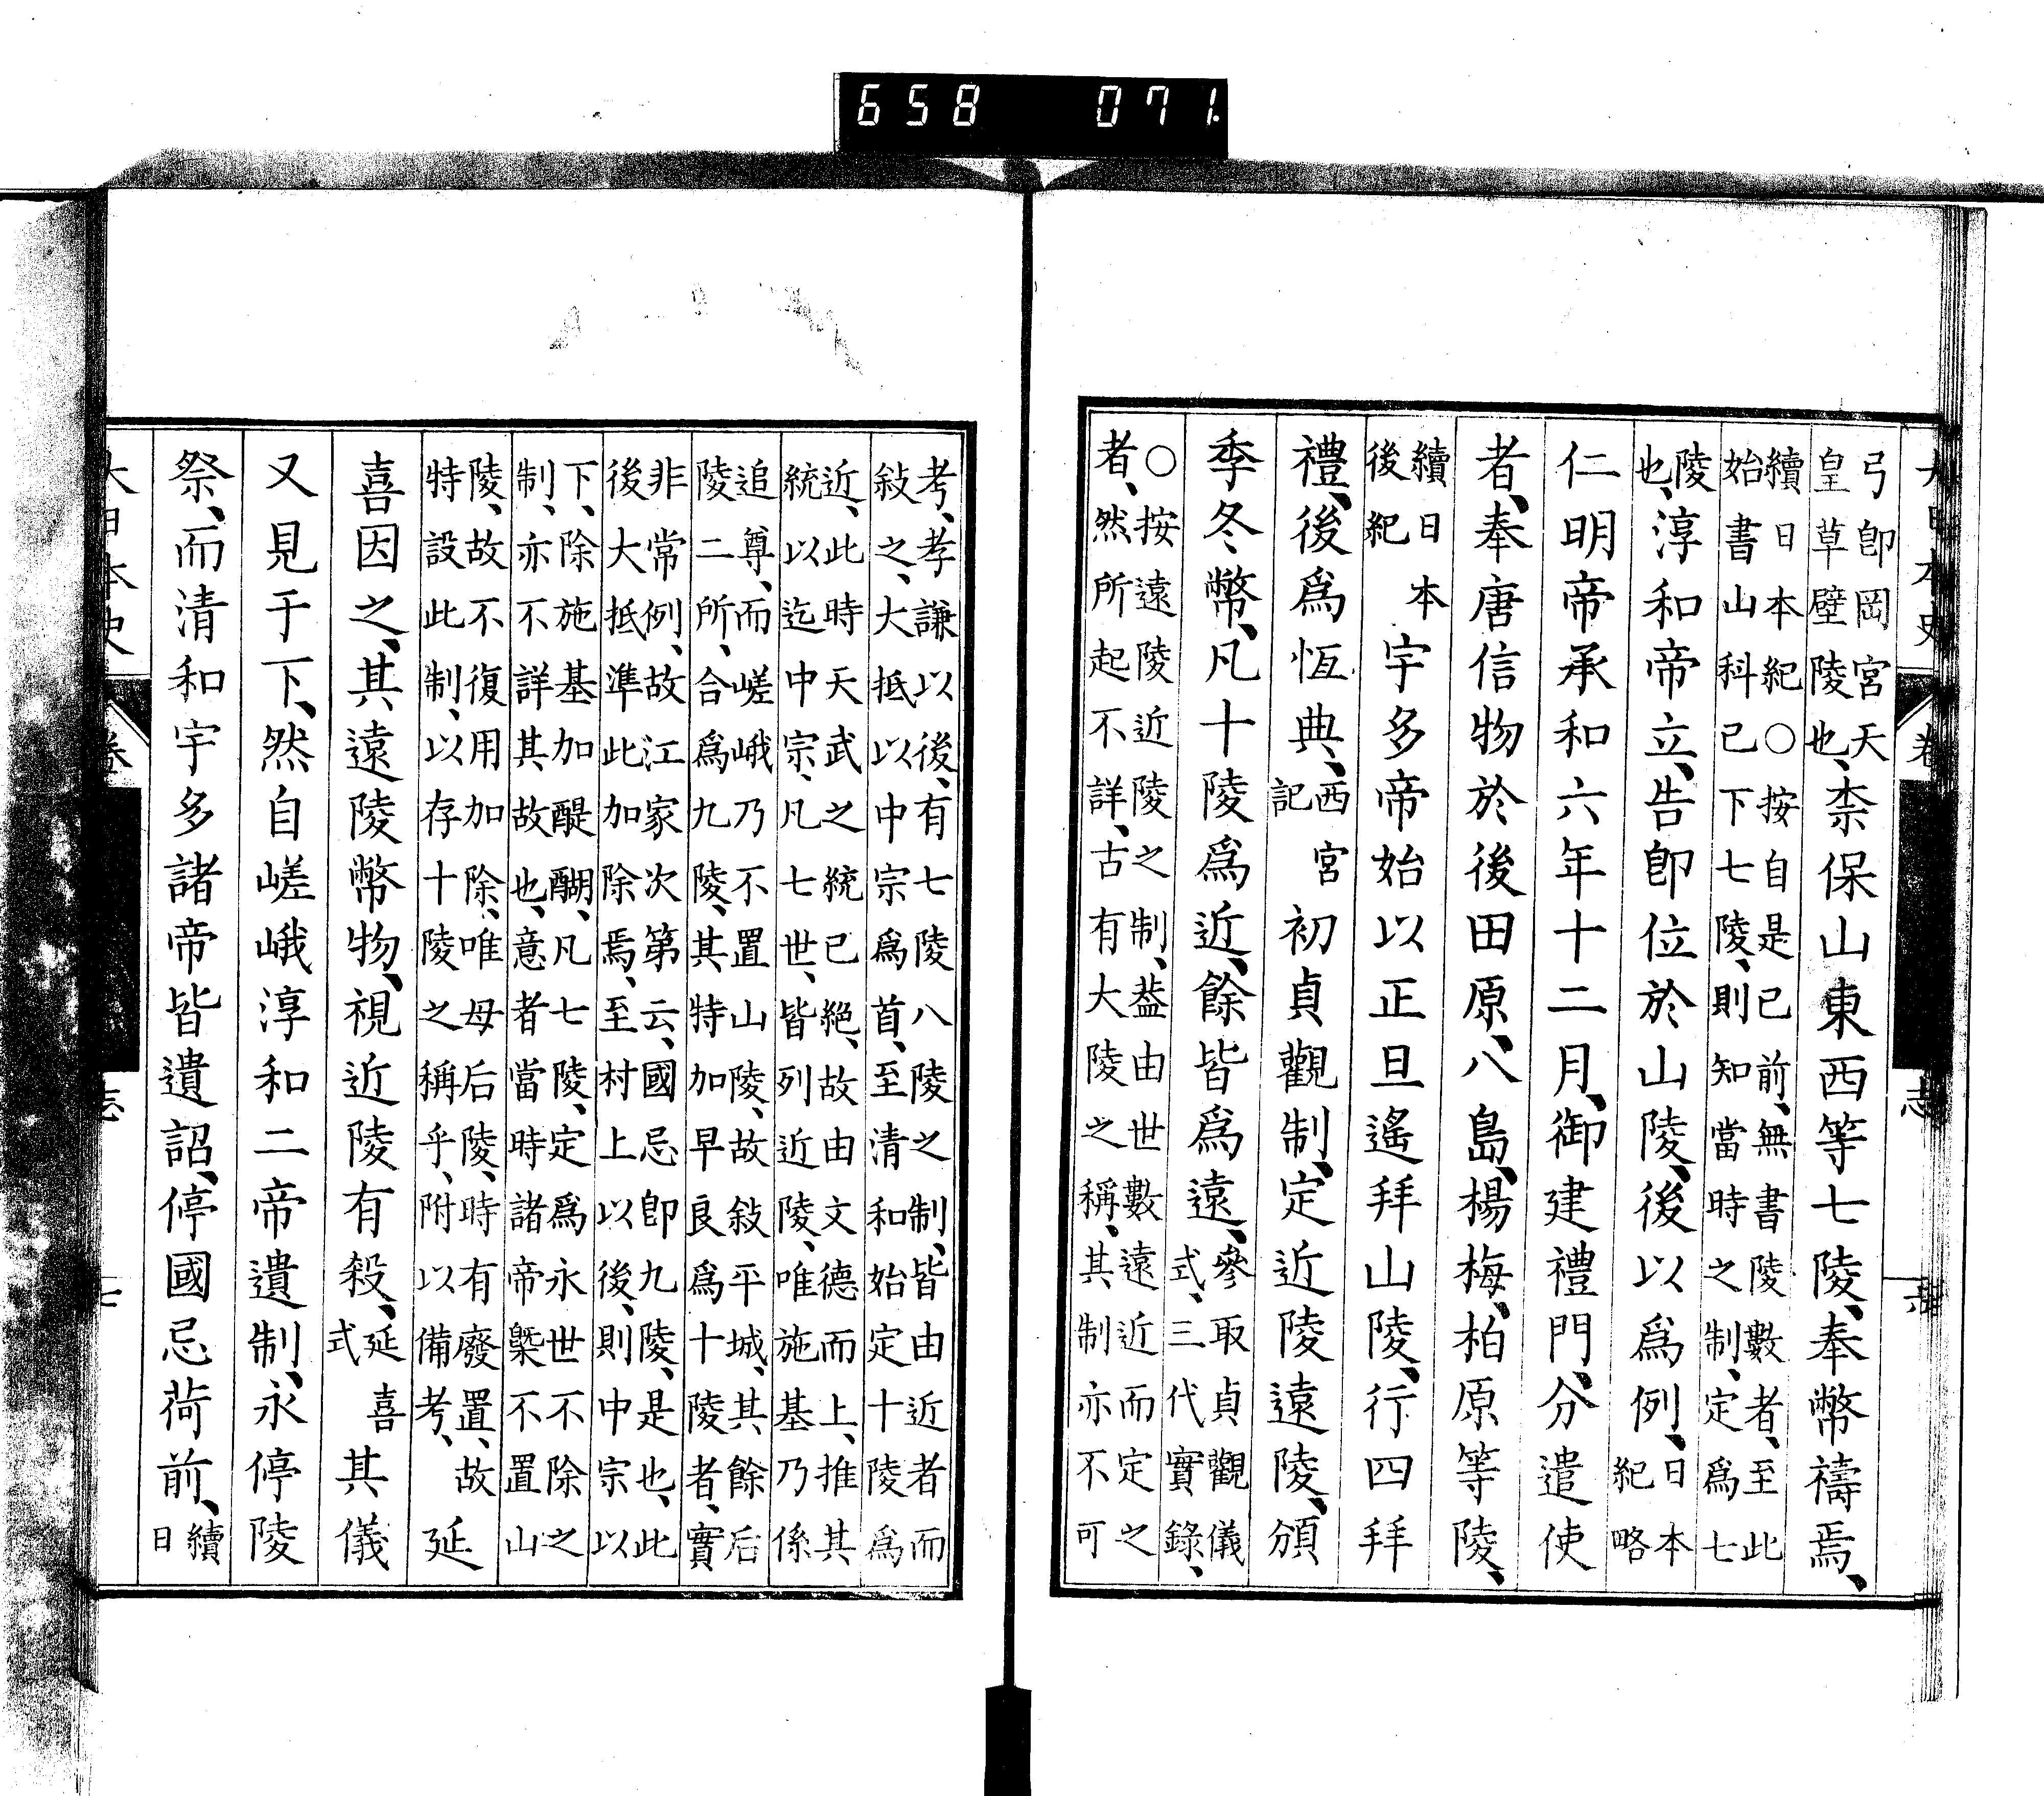 弓即岡宮天
皇草壁陵也、
柰保山東西等七陵、奉幣禱焉、
續日本紀○按自是已前、無書陵數者、至此
始書山科已下七陵、則知當時之制、定爲七
陵
也、
淳和帝立、告即位於山陵、後以爲例、
日本
紀略
仁明帝承和六年十二月、御建禮門、分遣使
者、奉唐信物於後田原、八島、楊梅、柏原等陵、
續日本
後紀
宇多帝始以正旦遙拜山陵、行四拜
禮、後爲恆典、
西宮
記
初貞觀制、定近陵遠陵、頒
季冬幣、凡十陵爲近、餘皆爲遠、
參取貞觀儀
式、三代實錄、
○按遠陵近陵之制、葢由世數遠近而定之
者、然所起不詳、古有大陵之稱、其制亦不可
考、孝謙以後、有七陵八陵之制、皆由近者而
敍之、大抵以中宗爲首、至清和始定十陵爲
近、此時天武之統已絕、故由文德而上、推其
統以迄中宗、凡七世、皆列近陵、唯施基乃係
追尊、而嵯峨乃不置山陵、故敍平城、其餘后
陵二所、合爲九陵、其特加早良爲十陵者、實
非常例、故江家次第云、國忌即九陵、是也、此
後大抵準此加除焉、至村上以後、則中宗以
下、除施基加醍醐、凡七陵、定爲永世不除之
制、亦不詳其故也、意者當時諸帝槩不置山
陵、故不復用加除、唯母后陵、時有廢置、故
特設此制、以存十陵之稱乎、附以備考、
延
喜因之、其遠陵幣物、視近陵有殺、
延喜
式
其儀
又見于下、然自嵯峨淳和二帝遺制、永停陵
祭、而清和宇多諸帝皆遺詔、停國忌荷前、
續
日
658 071.